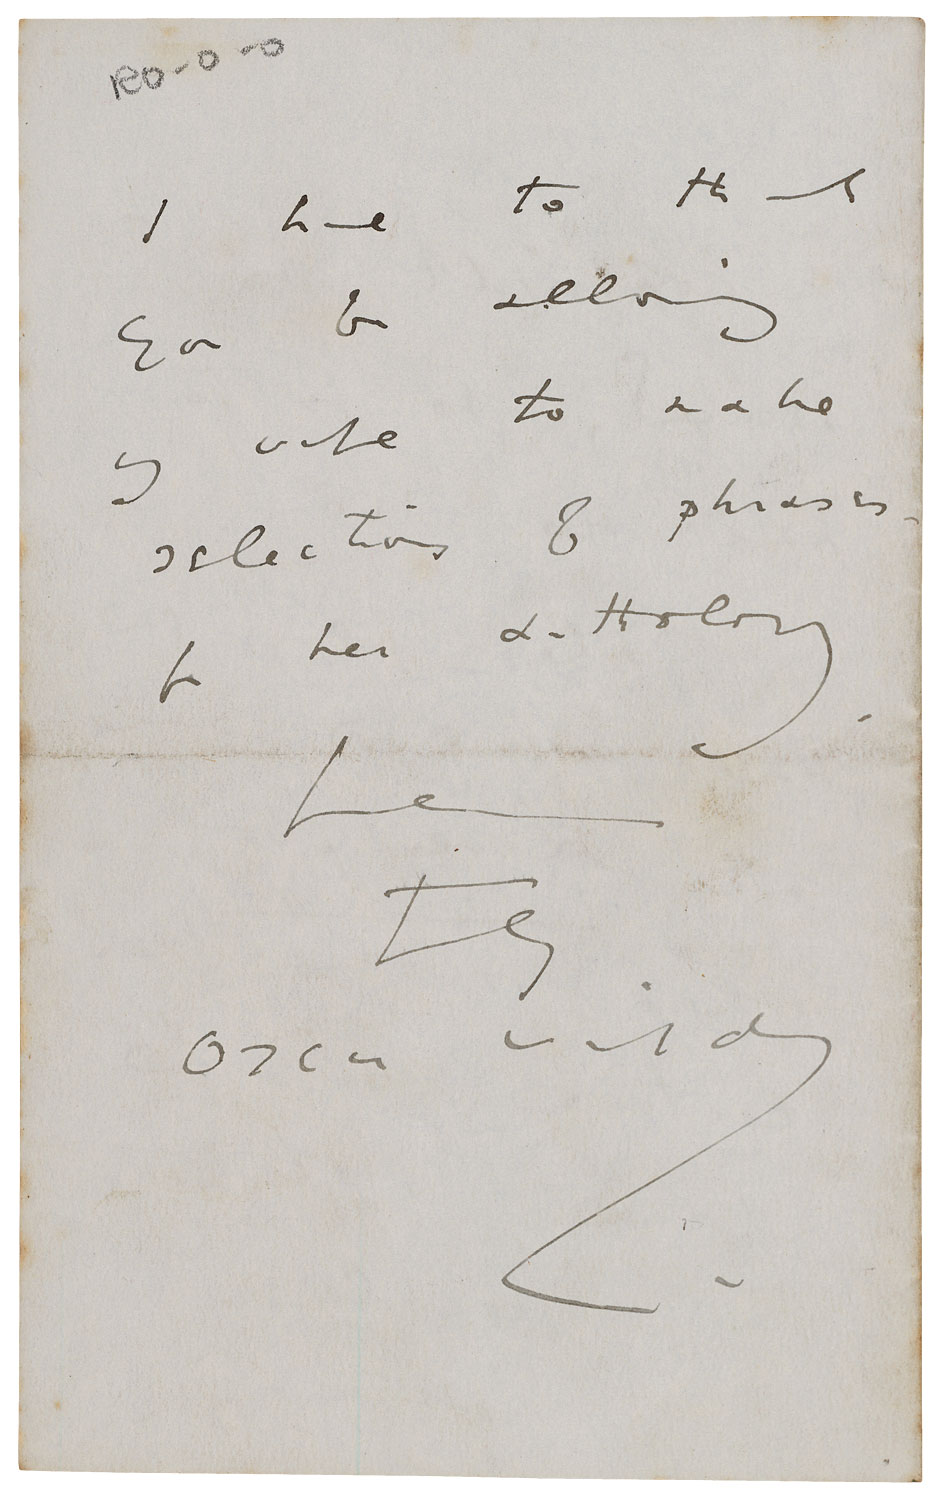 I have to thank
you for allowing
my wife to make
selections of phrases
for her anthology.
Truly
Oscar Wilde